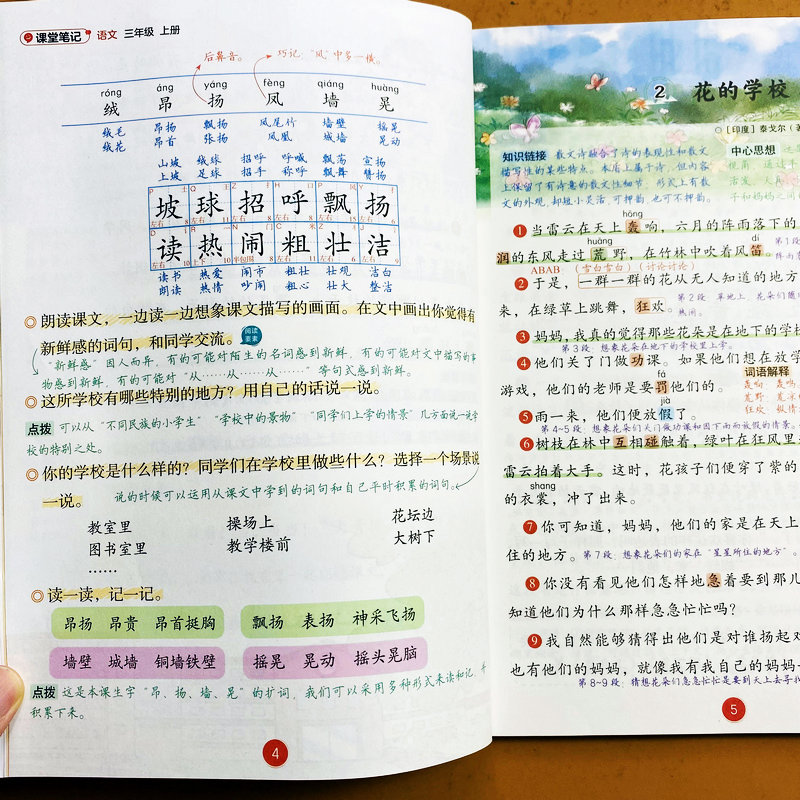 课堂笔记 语文 三年级 上册
后鼻音。 巧记："风"中多一横。
róng áng yáng fèng qiáng huàng
绒 昂 扬 凤 墙 晃
绒毛 昂扬 飘扬 凤尾竹 墙壁 摇晃
绒花 昂首 张扬 凤凰 城墙 晃动
山坡 绒球 招呼 呼喊 飘荡 宣扬
上坡 足球 招手 称呼 飘舞 赞扬
坡 球 招 呼 飘 扬
读 热 闹 粗 壮 洁
读书 热爱 闹市 粗壮 壮观 洁白
朗读 热情 吵闹 粗心 壮大 整洁
◎朗读课文，一边读一边想象课文描写的画面。在文中画出你觉得有
新鲜感的词句，和同学交流。 阅读要素
"新鲜感"因人而异，有的可能对陌生的名词感到新鲜，有的可能对文中描写的事
物感到新鲜，有的可能对"从……从……从……"等句式感到新鲜。
◎这所学校有哪些特别的地方？用自己的话说一说。
点拨 可以从"不同民族的小学生""学校中的景物""同学们上学的情景"几方面说一说学
校的特别之处。
◎你的学校是什么样的？同学们在学校里做些什么？选择一个场景说
一说。 说的时候可以运用从课文中学到的词句和自己平时积累的词句。
教室里 操场上 花坛边
图书室里 教学楼前 大树下
……
◎读一读，记一记。
昂扬 昂贵 昂首挺胸 飘扬 表扬 神采飞扬
墙壁 城墙 铜墙铁壁 摇晃 晃动 摇头晃脑
点拨 这是本课生字"昂、扬、墙、晃"的扩词，我们可以采用多种形式来读和记，并
积累下来。
4
2 花的学校
◎［印度］泰戈尔
知识链接 散文诗融合了诗的表现性和散文
描写性的某些特点。本质上属于诗，但内容
上保留了有诗意的散文性细节，形式上有散
文的外观，却短小灵活，可押韵，也可不押韵。
中心思想
hōng
❶当雷云在天上轰响，六月的阵雨落下的
huāng dí
润的东风走过荒野，在竹林中吹着口笛
ABAB（雪白雪白）（讨论讨论）
❷于是，一群一群的花从无人知道的地方
来，在绿草上跳舞，狂欢。
❸妈妈，我真的觉得那些花朵是在地下的学校
第3段：想象花朵在地下的学校里上学。
❹他们关了门做功课。如果他们想在放学
fá 词语解释
游戏，他们的老师是要罚他们的。
jià
❺雨一来，他们便放假了。
第4~5段：想象花朵们关门做功课和因下雨而放假的情景。
❻树枝在林中互相碰触着，绿叶在狂风里
雷云拍着大手。这时，花孩子们便穿了紫的
shang
的衣裳，冲了出来。
❼你可知道，妈妈，他们的家是在天上
住的地方。第7段：想象花朵们的家在"星星所住的地方"。
❽你没有看见他们怎样地急着要到那儿
知道他们为什么那样急急忙忙吗？
❾我自然能够猜得出他们是对谁扬起
也有他们的妈妈，就像我有我自己的妈妈
第8~9段：猜想花朵们急急忙忙是要到天上去寻找
5